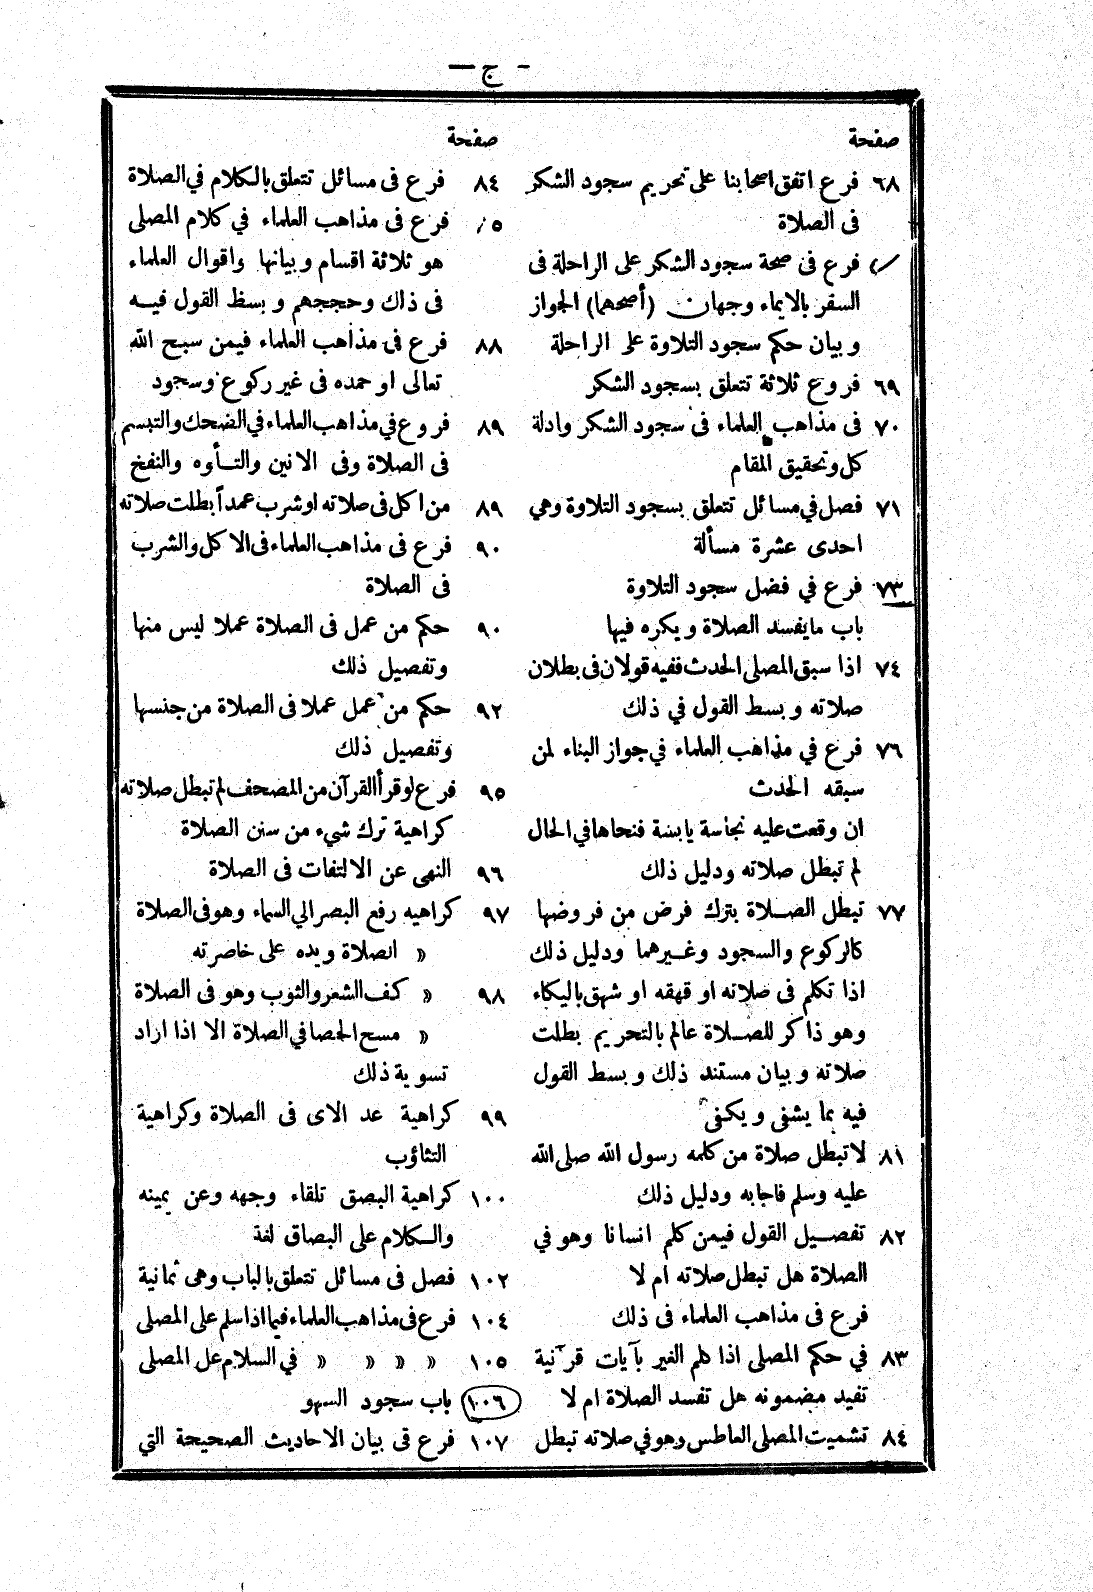 - ج -
صفحة
٦٨ فرع اتفق اصحابنا على تحريم سجود الشكر
فى الصلاة
فرع فى صحة سجود الشكر على الراحلة فى
السفر بالايماء وجهان (أصحهما) الجواز
وبيان حكم سجود التلاوة على الراحلة
٦٩ فروع ثلاثة تتعلق بسجود الشكر
٧٠ فى مذاهب العلماء فى سجود الشكر وادلة
كل وتحقيق المقام
٧١ فصل في مسائل تتعلق بسجود التلاوة وهي
احدى عشرة مسألة
٧٣ فرع في فضل سجود التلاوة
باب مايفسد الصلاة ويكره فيها
٧٤ اذا سبق المصلى الحدث ففيه قولان فى بطلان
صلاته وبسط القول في ذلك
٧٦ فرع في مذاهب العلماء في جواز البناء لمن
سبقه الحدث
ان وقعت عليه نجاسة يابسة فنحاها في الحال
لم تبطل صلاته ودليل ذلك
٧٧ تبطل الصلاة بترك فرض من فروضها
كالركوع والسجود وغيرهما ودليل ذلك
اذا تكلم فى صلاته او قهقه او شهق باليكاء
وهو ذاكر للصلاة عالم بالتحريم بطلت
صلاته وبيان مستند ذلك وبسط القول
فيه بما يشفى ويكفى
٨١ لاتبطل صلاة من كلمه رسول الله صلى الله
عليه وسلم فاجابه ودليل ذلك
٨٢ تفصيل القول فيمن كلم انسانا وهو في
الصلاة هل تبطل صلاته ام لا
فرع فى مذاهب العلماء فى ذلك
٨٣ في حكم المصلى اذا كلم الغير بآيات قرآنية
تفيد مضمونه هل تفسد الصلاة ام لا
٨٤ تشميت المصلى العاطس وهو في صلاته تبطل
صفحة
٨٤ فرع فى مسائل تتعلق بالكلام في الصلاة
٥ فرع فى مذاهب العلماء في كلام المصلى
هو ثلاثة اقسام وبيانها واقوال العلماء
فى ذاك وحججهم وبسط القول فيه
٨٨ فرع فى مذاهب العلماء فيمن سبح الله
تعالى او حمده فى غير ركوع وسجود
٨٩ فروع في مذاهب العلماء في الضحك والتبسم
فى الصلاة وفى الانين والتأوه والنفخ
٨٩ من اكل فى صلاته او شرب عمداً بطلت صلاته
٩٠ فرع فى مذاهب العلماء فى الاكل والشرب
فى الصلاة
٩٠ حكم من عمل فى الصلاة عملا ليس منها
وتفصيل ذلك
٩٢ حكم من عمل عملا فى الصلاة من جنسها
وتفصيل ذلك
٩٥ فرع لو قرأ القرآن من المصحف لم تبطل صلاته
كراهية ترك شيء من سنن الصلاة
٩٦ النهى عن الالتفات فى الصلاة
٩٧ كراهيه رفع البصر الي السماء وهو فى الصلاة
« الصلاة ويده على خاصرته
٩٨ « كف الشعر والثوب وهو فى الصلاة
« مسح الحصا في الصلاة الا اذا اراد
تسوية ذلك
٩٩ كراهية عد الاى فى الصلاة وكراهية
التثاؤب
١٠٠ كراهية البصق تلقاء وجهه وعن يمينه
والكلام على البصاق لغة
١٠٢ فصل فى مسائل تتعلق بالباب وهى ثمانية
١٠٤ فرع فى مذاهب العلماء فيما اذا سلم على المصلى
١٠٥ « « « « في السلام عل المصلى
١٠٦ باب سجود السهو
١٠٧ فرع فى بيان الاحاديث الصحيحة التي